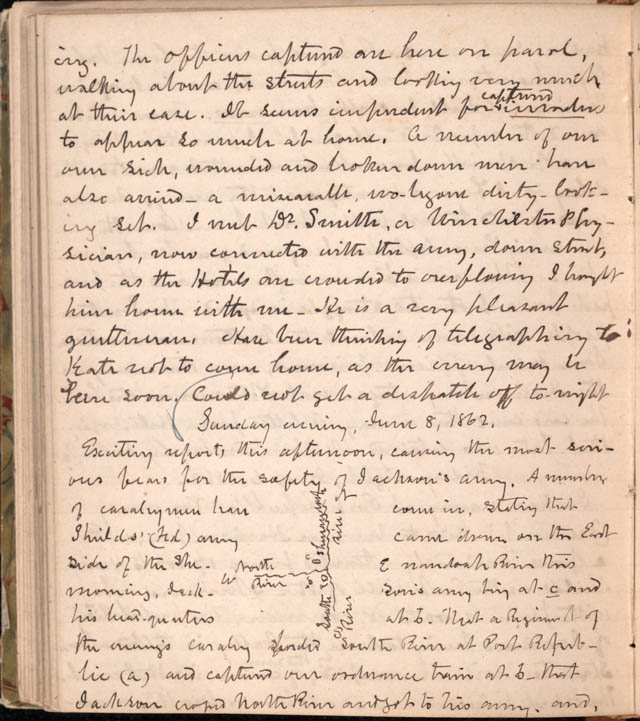 ing. The officers captured are here on parol,
walking about the streets and looking very much
at their ease. It seems impudent for captured invaders
to appear so much at home. A number of our
own sick, wounded and broken down men have
also arrived – a miserable, wo-begone dirty-look-
ing set. I met Dr. Smith, a Winchester Phy-
sician, now connected with the army, down street,
and as the Hotels are crowded to overflowing I brought
him home with me – He is a very pleasant
gentleman. Have been thinking of telegraphing to
Kate not to come home, as the enemy may be
here soon. Could not get a despatch off to-night
Sunday evening, June 8, 1862.
Exciting reports this afternoon, causing the most seri-
ous fears for the safety of Jackson's army. A number
of cavalrymen have come in, stating that
Shields' (Fed) army came down on the East
side of the She- E nandoah River this
morning, Jack- son's army being at c and
his head-quarters at b. That a Regiment of
North
River
W
Shenandoah
River
South
River
a
b
c
the enemy's cavalry forded South River at Port Repub-
lic (a) and captured our ordnance train at b – that
Jackson crossed North River and got to his army, and,